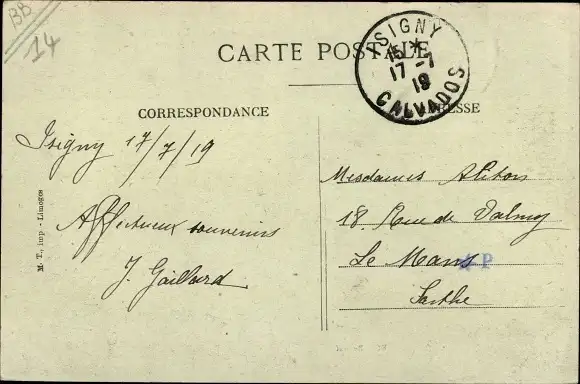 BB
14
CARTE POSTALE
ISIGNY
15 *
17 - 7
19
CALVADOS
CORRESPONDANCE
ADRESSE
Isigny 17/7/19
Affectueux souvenirs
J. Gaillard
Mesdames
18 Rue de Valmy
Le Mans
Sarthe
P
M. T., imp. - Limoges